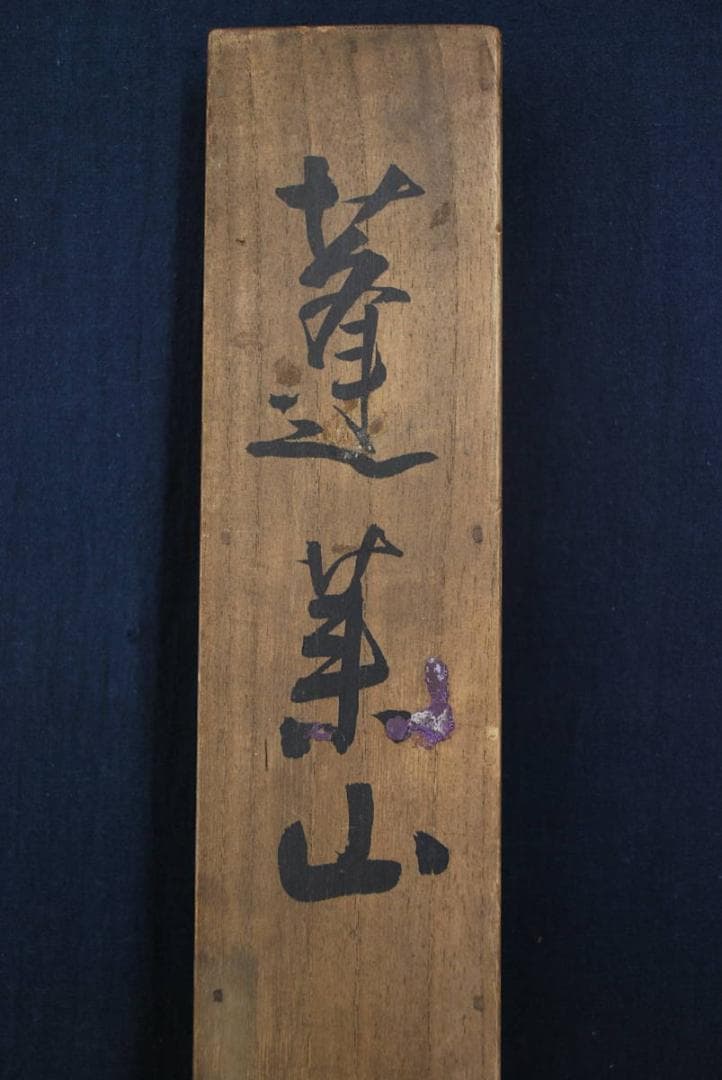 蓬莱山